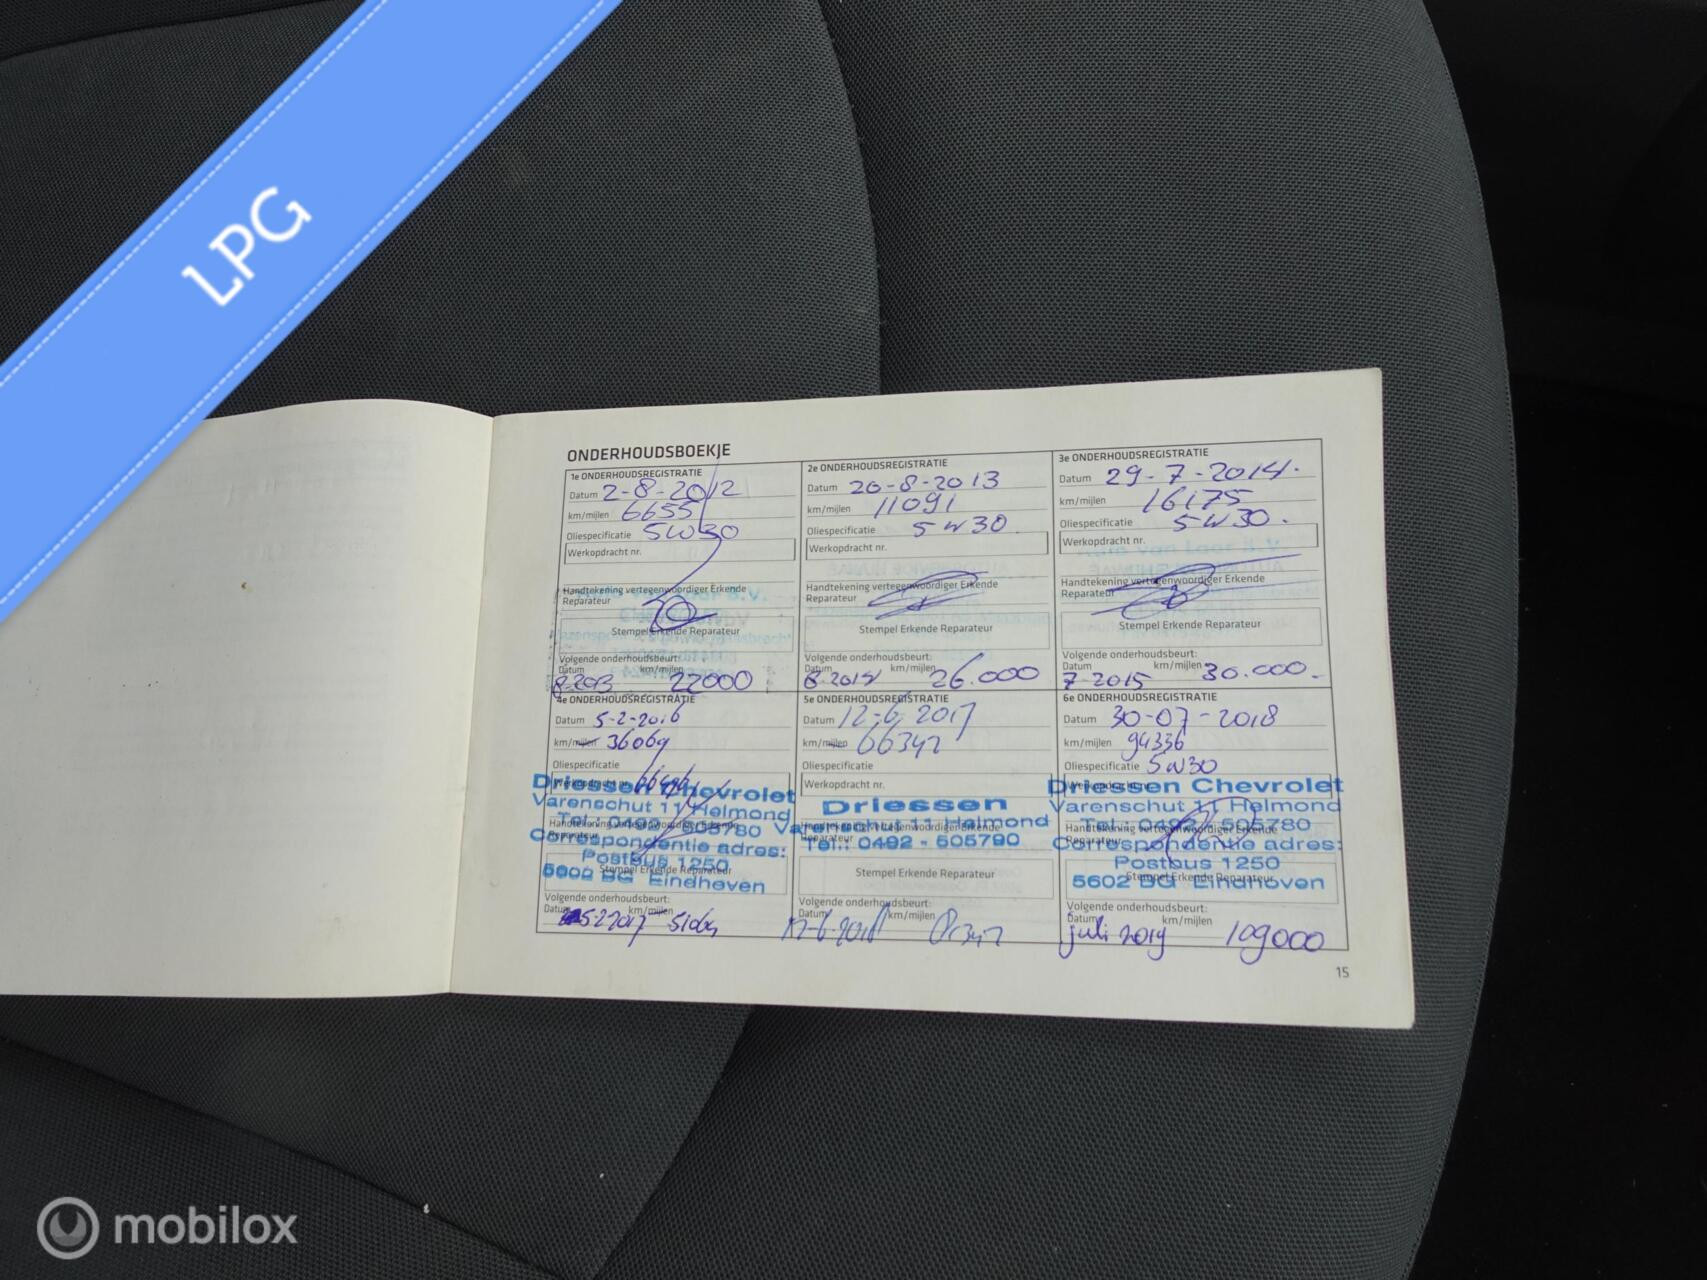 LPG
ONDERHOUDSBOEKJE
1e ONDERHOUDSREGISTRATIE
Datum 2-8-2012
km/mijlen 6655
Oliespecificatie 5W30
Werkopdracht nr.
Handtekening vertegenwoordiger Erkende
Reparateur
Stempel Erkende Reparateur
Volgende onderhoudsbeurt:
Datum km/mijlen
8-2013 22000
2e ONDERHOUDSREGISTRATIE
Datum 20-8-2013
km/mijlen 11091
Oliespecificatie 5W30
Werkopdracht nr.
Handtekening vertegenwoordiger Erkende
Reparateur
Stempel Erkende Reparateur
Volgende onderhoudsbeurt:
Datum km/mijlen
8-2014 26.000
3e ONDERHOUDSREGISTRATIE
Datum 29-7-2014.
km/mijlen 16175
Oliespecificatie 5W30.
Werkopdracht nr.
Handtekening vertegenwoordiger Erkende
Reparateur
Stempel Erkende Reparateur
Volgende onderhoudsbeurt:
Datum km/mijlen
7-2015 30.000
4e ONDERHOUDSREGISTRATIE
Datum 5-2-2016
km/mijlen 36069
Oliespecificatie
Werkopdracht nr.
Driessen Chevrolet
Varenschut 11 Helmond
Tel.: 0492 - 505780
Handtekening vertegenwoordiger Erkende
Reparateur
Correspondentie adres:
Postbus 1250
Stempel Erkende Reparateur
5602 BG Eindhoven
Volgende onderhoudsbeurt:
Datum km/mijlen
5-2-2017 51069
5e ONDERHOUDSREGISTRATIE
Datum 12-6-2017
km/mijlen 66347
Oliespecificatie
Werkopdracht nr.
Driessen
Varenschut 11 Helmond
Handtekening vertegenwoordiger Erkende
Reparateur
Tel.: 0492 - 505790
Stempel Erkende Reparateur
Volgende onderhoudsbeurt:
Datum km/mijlen
6e ONDERHOUDSREGISTRATIE
Datum 30-07-2018
km/mijlen 94336
Oliespecificatie 5W30
Werkopdracht nr.
Driessen Chevrolet
Varenschut 11 Helmond
Tel.: 0492 - 505780
Handtekening vertegenwoordiger Erkende
Reparateur
Correspondentie adres:
Postbus 1250
Stempel Erkende Reparateur
5602 BG Eindhoven
Volgende onderhoudsbeurt:
Datum km/mijlen
juli 2019 109000
15
mobilox